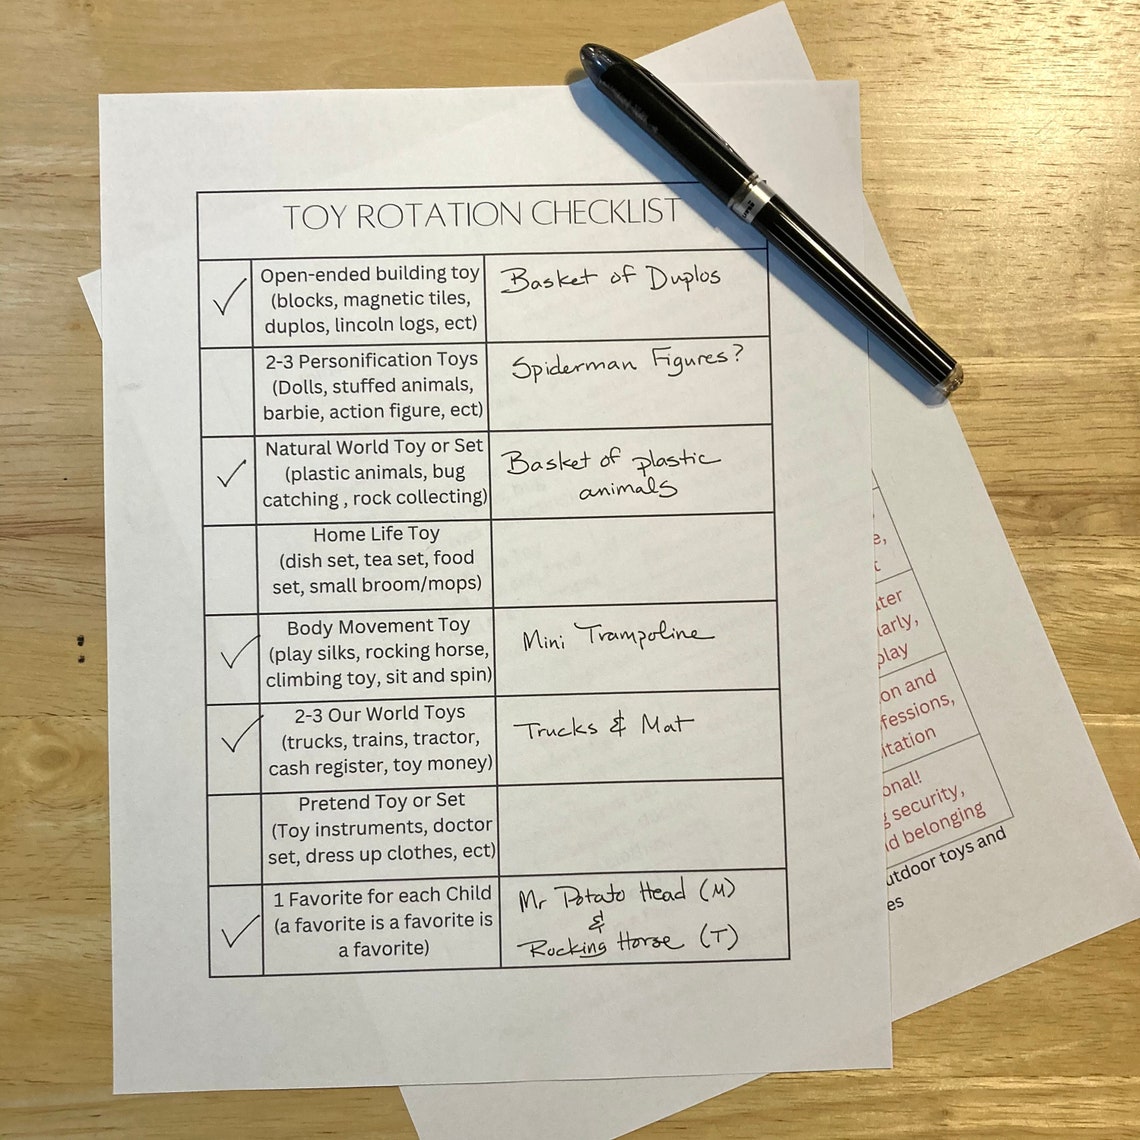 TOY ROTATION CHECKLIST
Open-ended building toy
(blocks, magnetic tiles,
duplos, lincoln logs, ect)
Basket of Duplos
2-3 Personification Toys
(Dolls, stuffed animals,
barbie, action figure, ect)
Spiderman Figures?
Natural World Toy or Set
(plastic animals, bug
catching , rock collecting)
Basket of plastic
animals
Home Life Toy
(dish set, tea set, food
set, small broom/mops)
Body Movement Toy
(play silks, rocking horse,
climbing toy, sit and spin)
Mini Trampoline
2-3 Our World Toys
(trucks, trains, tractor,
cash register, toy money)
Trucks & Mat
Pretend Toy or Set
(Toy instruments, doctor
set, dress up clothes, ect)
1 Favorite for each Child
(a favorite is a favorite is
a favorite)
Mr Potato Head (M)
&
Rocking Horse (T)
on and
security,
belonging
toys and